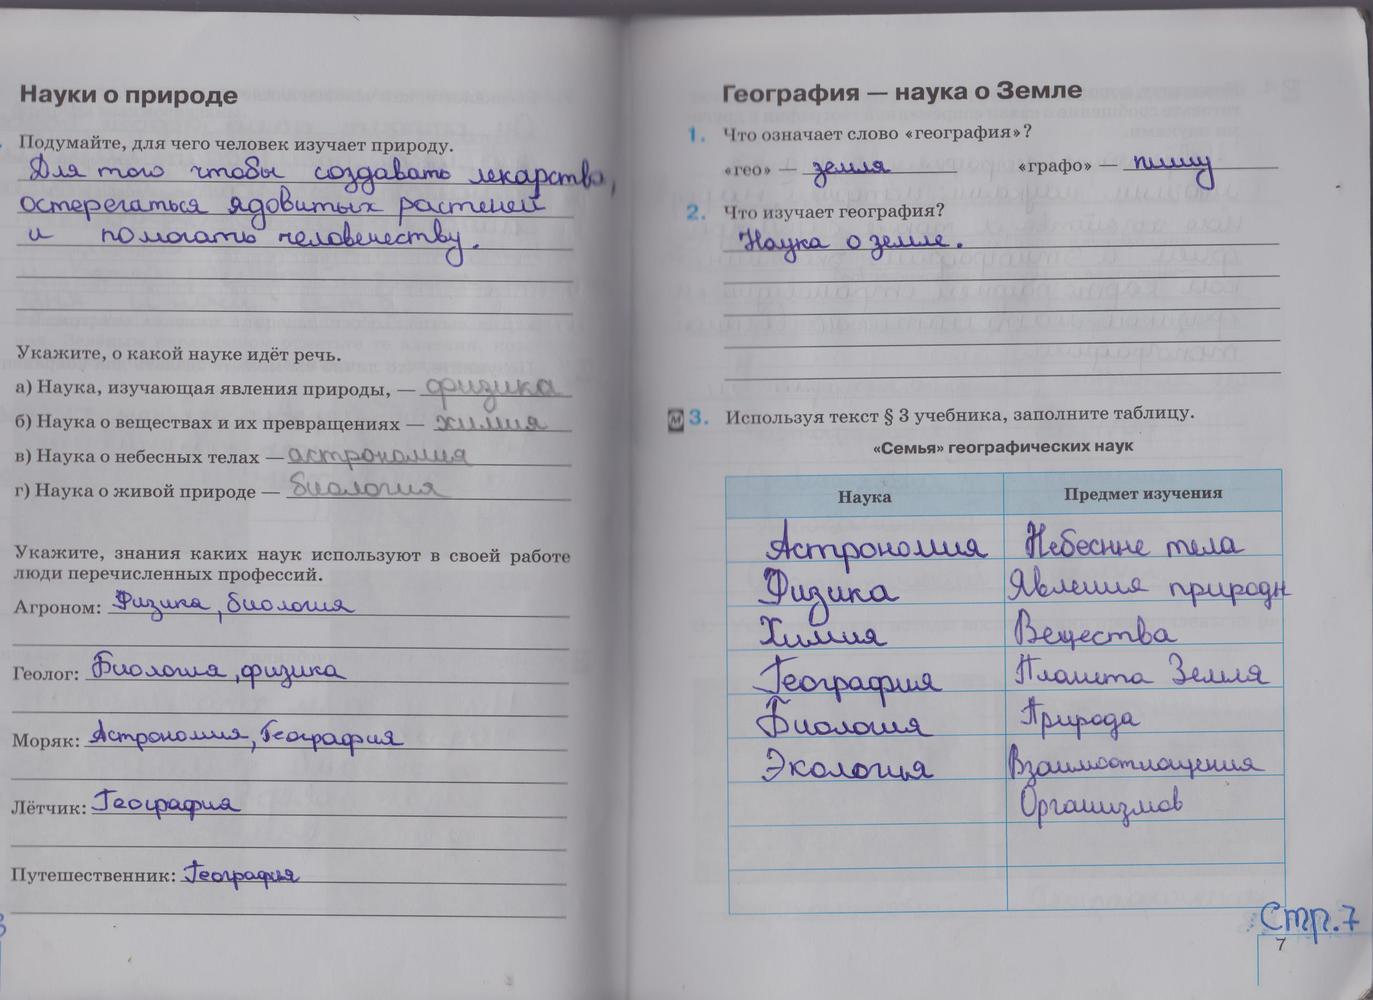 Науки о природе
Подумайте, для чего человек изучает природу.
Для того чтобы создавать лекарства,
остерегаться ядовитых растений
и помогать человечеству.
Укажите, о какой науке идёт речь.
а) Наука, изучающая явления природы, — физика
б) Наука о веществах и их превращениях — химия
в) Наука о небесных телах — астрономия
г) Наука о живой природе — биология
Укажите, знания каких наук используют в своей работе
люди перечисленных профессий.
Агроном: Физика, биология
Геолог: Биология, физика
Моряк: Астрономия, География
Лётчик: География
Путешественник: География
География — наука о Земле
1. Что означает слово «география»?
«гео» — земля «графо» — пишу
2. Что изучает география?
Наука о земле.
3. Используя текст § 3 учебника, заполните таблицу.
«Семья» географических наук
Наука Предмет изучения
Астрономия Небесние тела
Физика Явления природи
Химия Вещества
География Планета Земля
Биология Природа
Экология Взаимоотнощения
Организмов
Стр.7
7